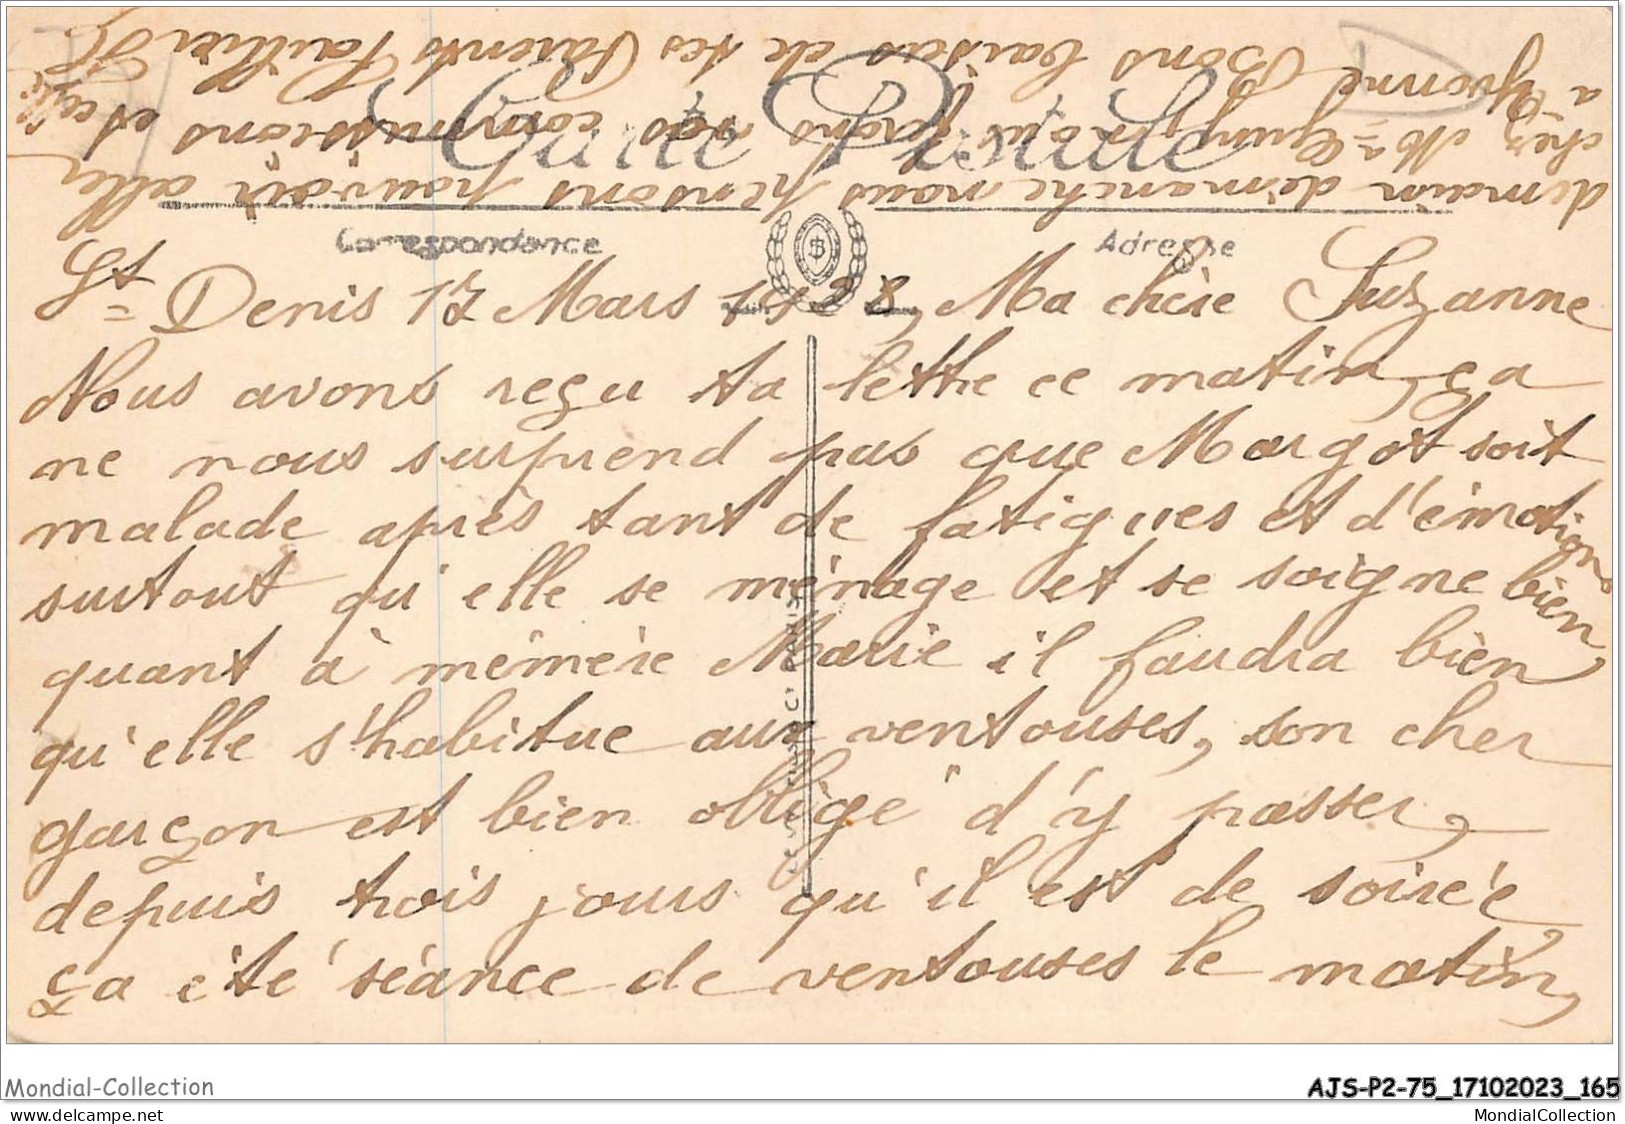 St Denis 17 Mars 1928, Ma chère Suzanne
Nous avons reçu ta lettre ce matin, ça
ne nous surprend pas que Margot soit
malade après tant de fatigues et d'émotions
surtout qu'elle se ménage et se soigne bien
quant à mémère Marie il faudra bien
qu'elle s'habitue aux ventouses, son cher
garçon est bien obligé d'y passer,
depuis trois jours qu'il est de soirée,
ça été séance de ventouses le matin,
demain dimanche nous pensons pouvoir aller
chez Mr nous ferons vos commissions et
à Yvonne Bons baisers de tes Parents
Carte Postale
Correspondance
Adresse
Mondial-Collection
AJS-P2-75_17102023_165
MondialCollection